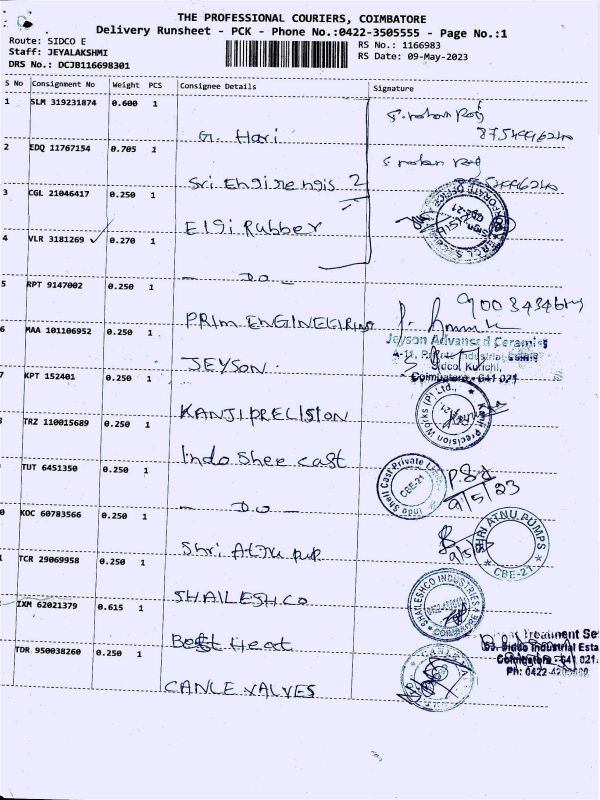 THE PROFESSIONAL COURIERS, COIMBATORE
Delivery Runsheet - PCK - Phone No.:0422-3505555 - Page No.:1
Route: SIDCO E
Staff: JEYALAKSHMI
DRS No.: DCJB116698301
RS No.: 1166983
RS Date: 09-May-2023
S No Consignment No Weight PCS Consignee Details Signature
1 SLM 319231874 0.600 1
G. Hari
2 EDQ 11767154 0.705 1
Sri Engineengis 2
3 CGL 21046417 0.250 1
Elgi Rubber
4 VLR 3181269 0.270 1
- DO -
5 RPT 9147002 0.250 1
PRIM ENGINEERING
6 MAA 101106952 0.250 1
JEYSON
Jeyson Advanced Ceramics
Sidco, Kurichi,
Coimbatore - 641 021
7 KPT 152401 0.250 1
KANJI PRECISION
Kanji Precision Works (P) Ltd.,
TRZ 110015689 0.250 1
Indo Shee cast
TUT 6451350 0.250 1
- DO -
Indo Shell Cast Private
CBE-21
9/5/23
0 KOC 60783566 0.250 1
Shri Atnu pup
SHRI ATNU PUMPS
CBE-21
TCR 29069958 0.250 1
SHAILESHCO
SHAILESHCO INDUSTRIES
COIMBATORE
IXM 62021379 0.615 1
Best Heat
Treatment Se
Sidco Industrial Esta
Coimbatore - 641 021.
TDR 950038260 0.250 1
CANLE VALVES